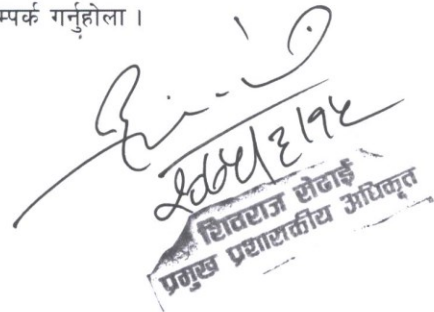 म्पर्क गर्नुहोला ।
शिवराज सेढाई
प्रमुख प्रशासकीय अधिकृत